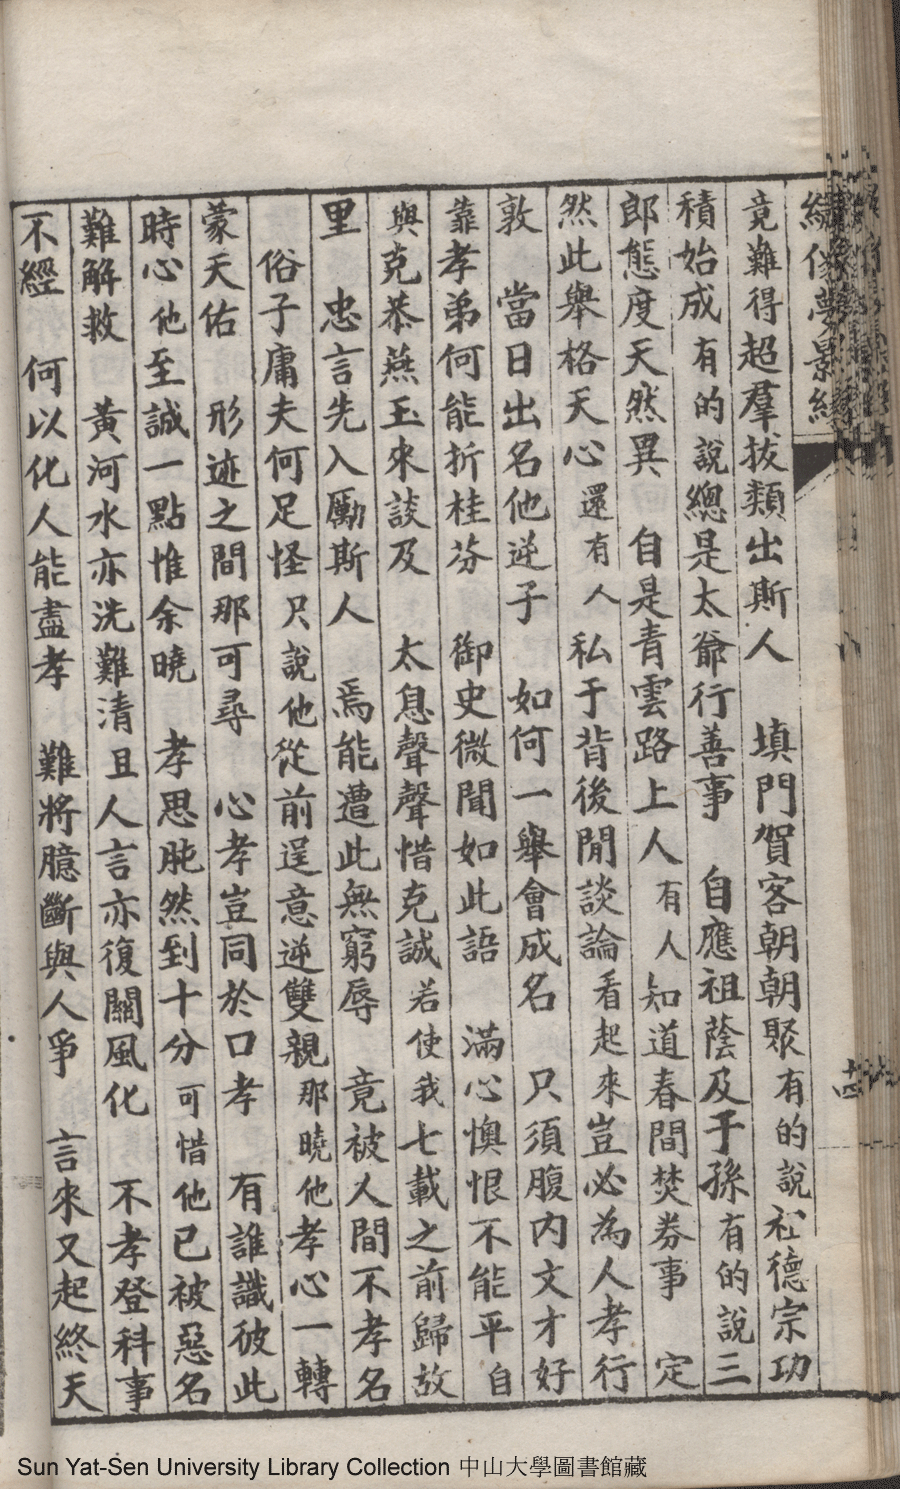 繡像夢景緣
十四
竟難得超羣拔類出斯人　填門賀客朝朝聚有的說祖德宗功
積始成有的說總是太爺行善事　自應祖蔭及于孫有的說三
郎態度天然異　自是青雲路上人有人知道春間焚券事　定
然此舉格天心還有人私于背後閒談論看起來豈必為人孝行
敦　當日出名他逆子　如何一舉會成名　只須腹內文才好
靠孝弟何能折桂芬　御史微聞如此語　滿心懊恨不能平自
與克恭燕玉來談及　太息聲聲惜克誠若使我七載之前歸故
里　忠言先入勵斯人　焉能遭此無窮辱　竟被人間不孝名
俗子庸夫何足怪只說他從前逞意逆雙親那曉他孝心一轉
蒙天佑　形迹之間那可尋　心孝豈同於口孝　有誰識彼此
時心他至誠一點惟余曉　孝思肫然到十分可惜他已被惡名
難解救　黃河水亦洗難清且人言亦復關風化　不孝登科事
不經　何以化人能盡孝　難將臆斷與人爭　言來又起終天
Sun Yat-Sen University Library Collection 中山大學圖書館藏